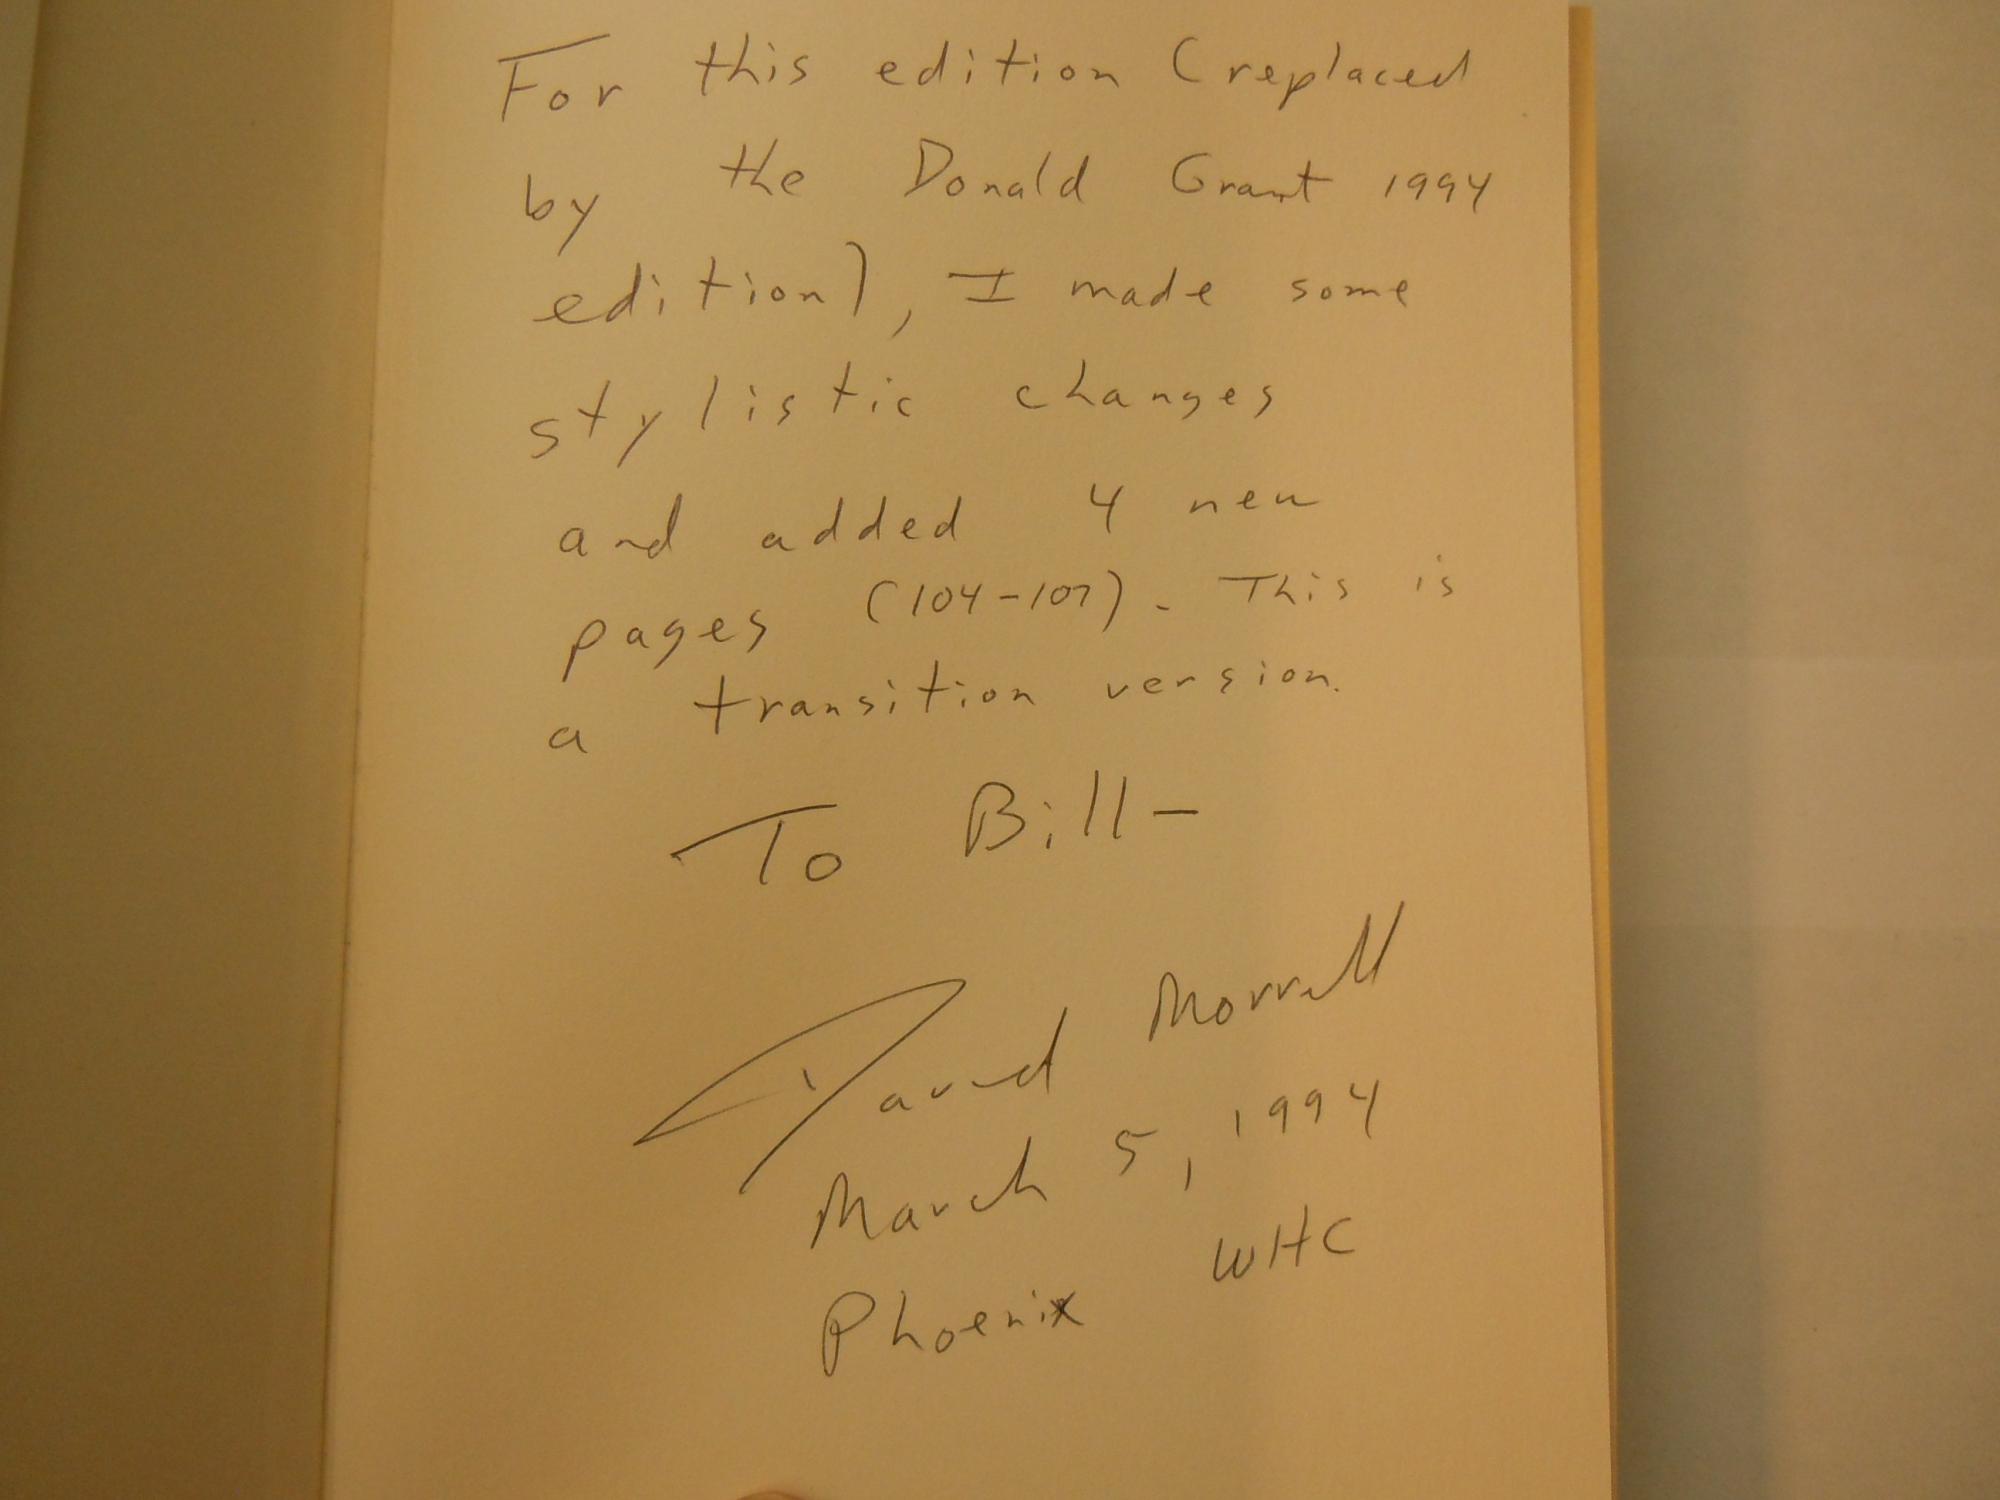 For this edition (replaced
by the Donald Grant 1994
edition), I made some
stylistic changes
and added 4 new
pages (104-107). This is
a transition version.
To Bill-
David Morrell
March 5, 1994
Phoenix WHC